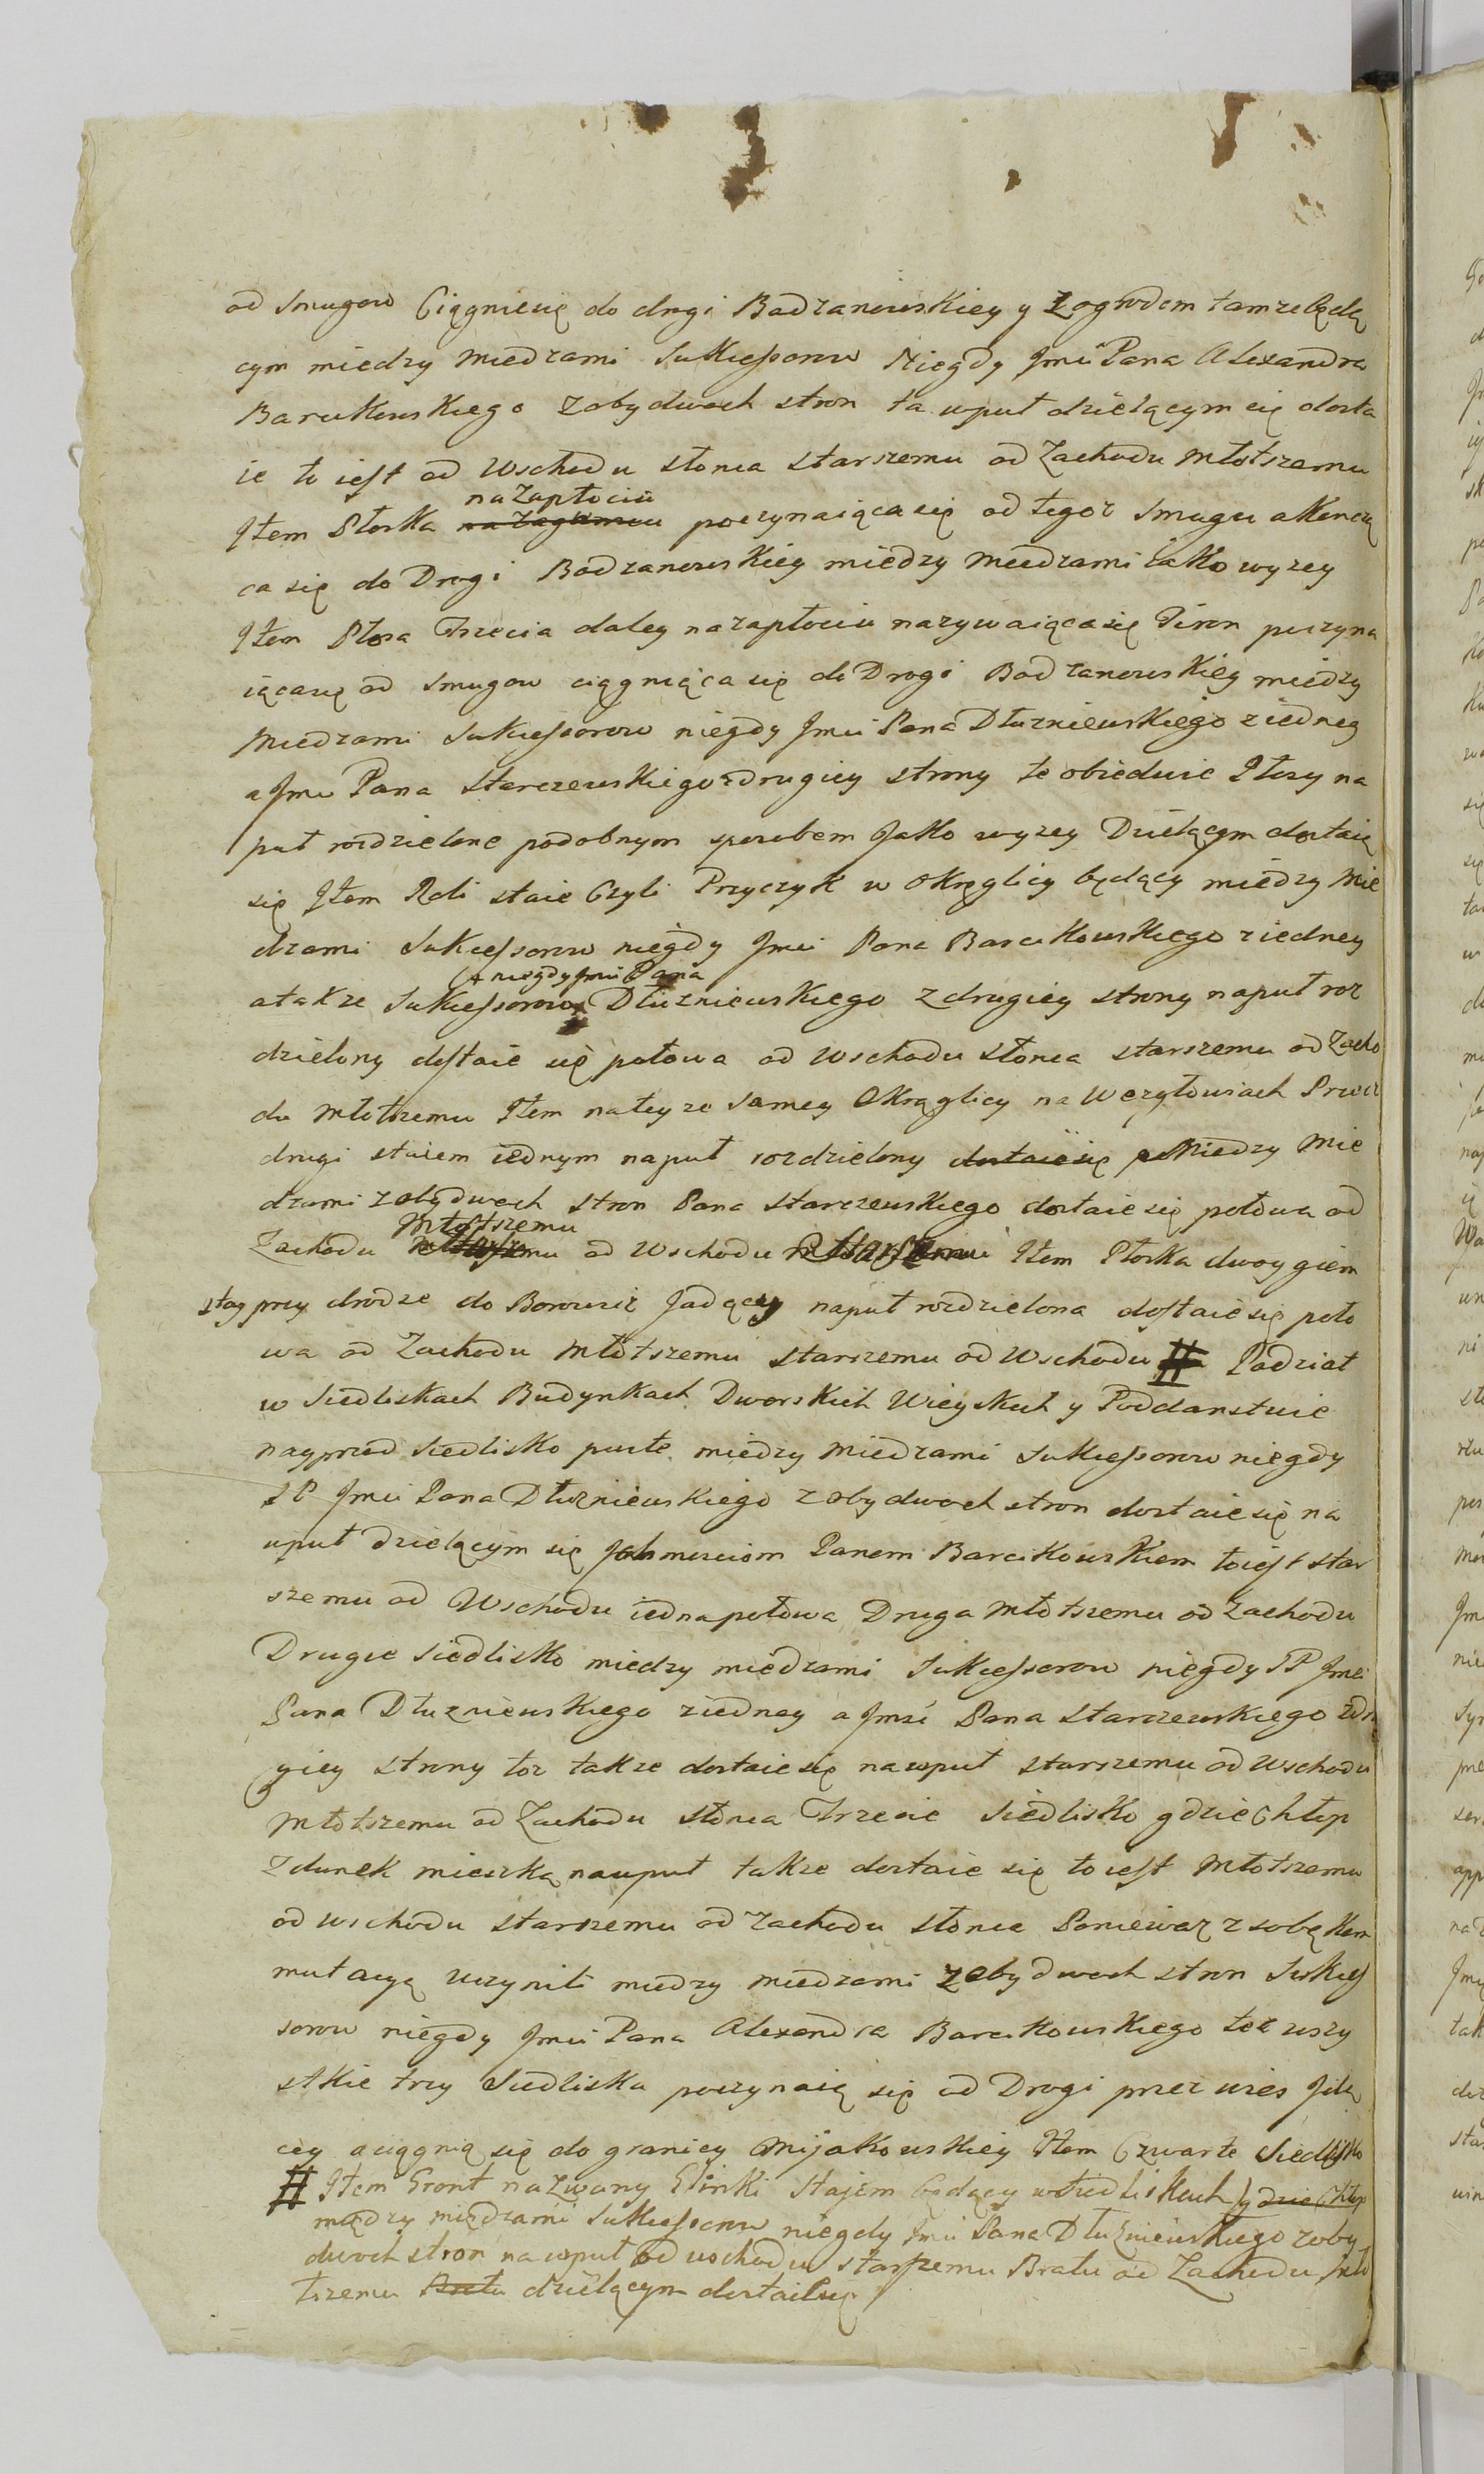 od Smugow Ciągniesię do drogi Bodzanowskiey y Zogrodem tamze będą
cym miedzy miedzami Sukcessorow Niegdy Jmci Pana Alexandra
Barcikowskiego zobydwoch stron ta wpuł dzielącym się dosta
ie to iest od Wschodu słonca starszemu od Zachodu Młotszemu
na Zapłociu
Item Płoska poczynaiącasię od tegoz Smugu akonczą
ca się do Drogi Bodzanowskiey miedzy miedzami iako wyzey
Item Płosa Trzecia daley nazapłociu nazywaiącasię poczyna
iącasię od Smugow ciągniąca się do Drogi Bodzanowskiey miedzy
miedzami Sukcessorow niegdy Jmci Pana Dłuzniewskiego ziedney
a Jmci Pana Starczewskiego zdrugiey strony te obiedwie Płosy na
puł rozdzielone podobnym sposobem Jako wyzey Dzielącym dostaią
się Item Roli staie Czyli Przyczyk w Okręglicy będący miedzy mie
dzami Sukcessorow niegdy Jmci Pana Barcikowskiego ziedney
+ niegdy Jmci Pana
atakze Sukcessorow Dłuzniewskiego zdrugiey strony napuł roz
dzielony dostaie się połowa od Wschodu słonca starszemu od Zacho
du młotszemu Item nateyze samey Okrąglicy na Wezgłowiach
drugi staiem iednym napuł rozdzielony dostaiesię miedzy mie
dzami zobydwoch stron Pana Starczewskiego dostaie się połowa od
Młotszemu
Zachodu od Wschodu Starszemu Item Płoska dwoygiem
stay przy drodze do Borowic Jadący napuł rozdzielona dostaie się poło
wa od Zachodu młotszemu starszemu od Wschodu # Podział
w Siedliskach Budynkach Dworskich Wieyskich y Poddanstwie
nayprzod Siedlisko puste miedzy miedzami Sukcessorow niegdy
SP Jmci Pana Dłuzniewskiego zobydwoch stron dostaie się na
wpuł dzielącym się Ichmosciom Panom Barcikowskiem toiest star
szemu od Wschodu iedna połowa Druga młotszemu od Zachodu
Drugie Siedlisko miedzy miedzami Sukcessorow niegdy SP Jmci
Pana Dłuzniewskiego ziedney a Jmsci Pana Starczewskiego zdru
giey strony toz takze dostaie się nawpuł starszemu od Wschodu
młotszemu od Zachodu słonca Trzecie Siedlisko gdzie Chłop
Zdunek mieszka nawpuł takze dostaie się to iest młotszemu
od wschodu starszemu od Zachodu słonca Poniewaz z sobą kom
mutacyą uczynili miedzy miedzami zobydwoch stron Sukces
sorow niegdy Jmci Pana Alexandra Barcikowskiego tez wszy
stkie trzy Siedliska poczynaią się od Drogi przez wies Idą
cey aciągnią się do granicy Mijakowskiey Item Czwarte Siedlisko
# Item Gront nazwany Glinki stajem będący wsiedliskach gdzie Chłop
między międzami Sukcessorow niegdy Jmci Pana Dłużniewskiego zoby
dwoch stron nawpuł od wschodu starszemu Bratu od Zachodu mło
tszemu Bratu dzielącym dostaie się